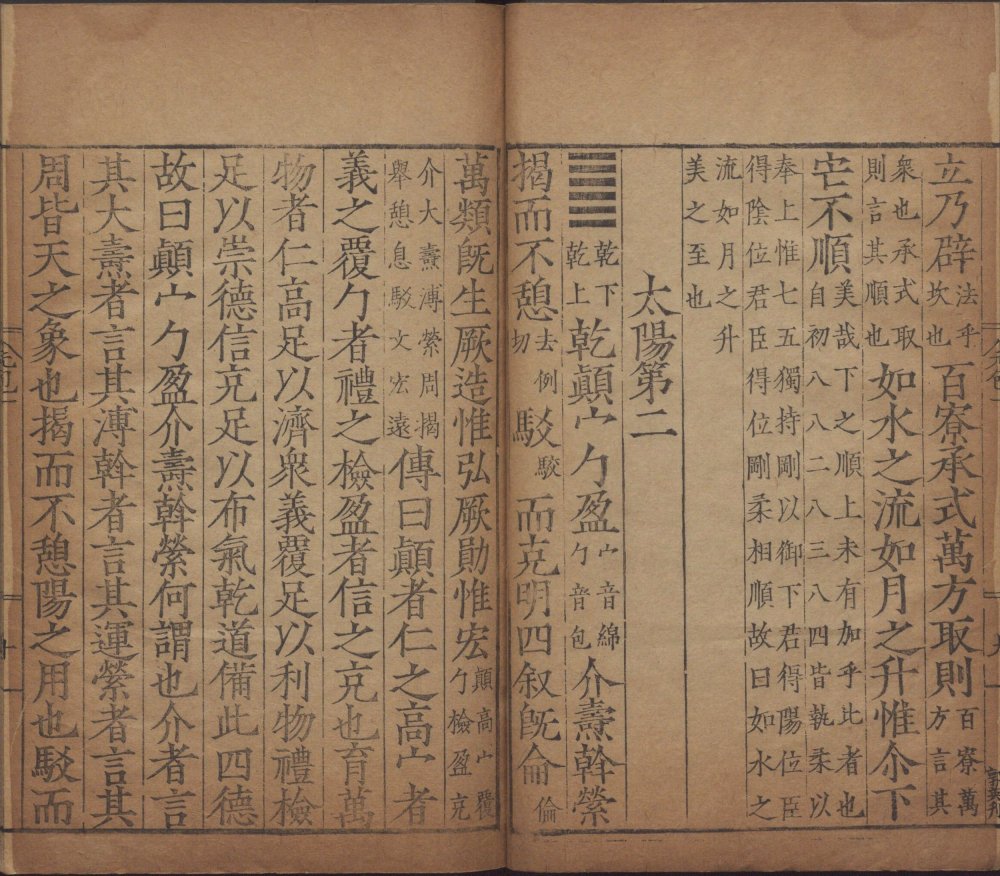 立乃辟法乎坎也百寮承式萬方取則百寮萬方言其
衆也承式取則言其順也如水之流如月之升惟尒下
不順美哉下之順上未有加乎此者也自初八八二八三八四皆執柔以
奉上惟七五獨持剛以御下君得陽位臣得陰位君臣得位剛柔相順故曰如水之
流如月之升美之至也
太陽第二
乾下乾上乾顚宀勹盈宀音綿勹音包介燾斡縈
揭而不憩去例切駮而克明四叙旣侖倫
萬類旣生厥造惟弘厥勛惟宏顚高宀覆勹檢盈充
介大燾溥縈周揭舉憩息駮文宏遠傳曰顚者仁之高宀者
義之覆勹者禮之檢盈者信之充也育萬
物者仁高足以濟衆義覆足以利物禮檢
足以崇德信充足以布氣乾道備此四德
故曰顚宀勹盈介燾斡縈何謂也介者言
其大燾者言其溥斡者言其運縈者言其
周皆天之象也揭而不憩陽之用也駮而